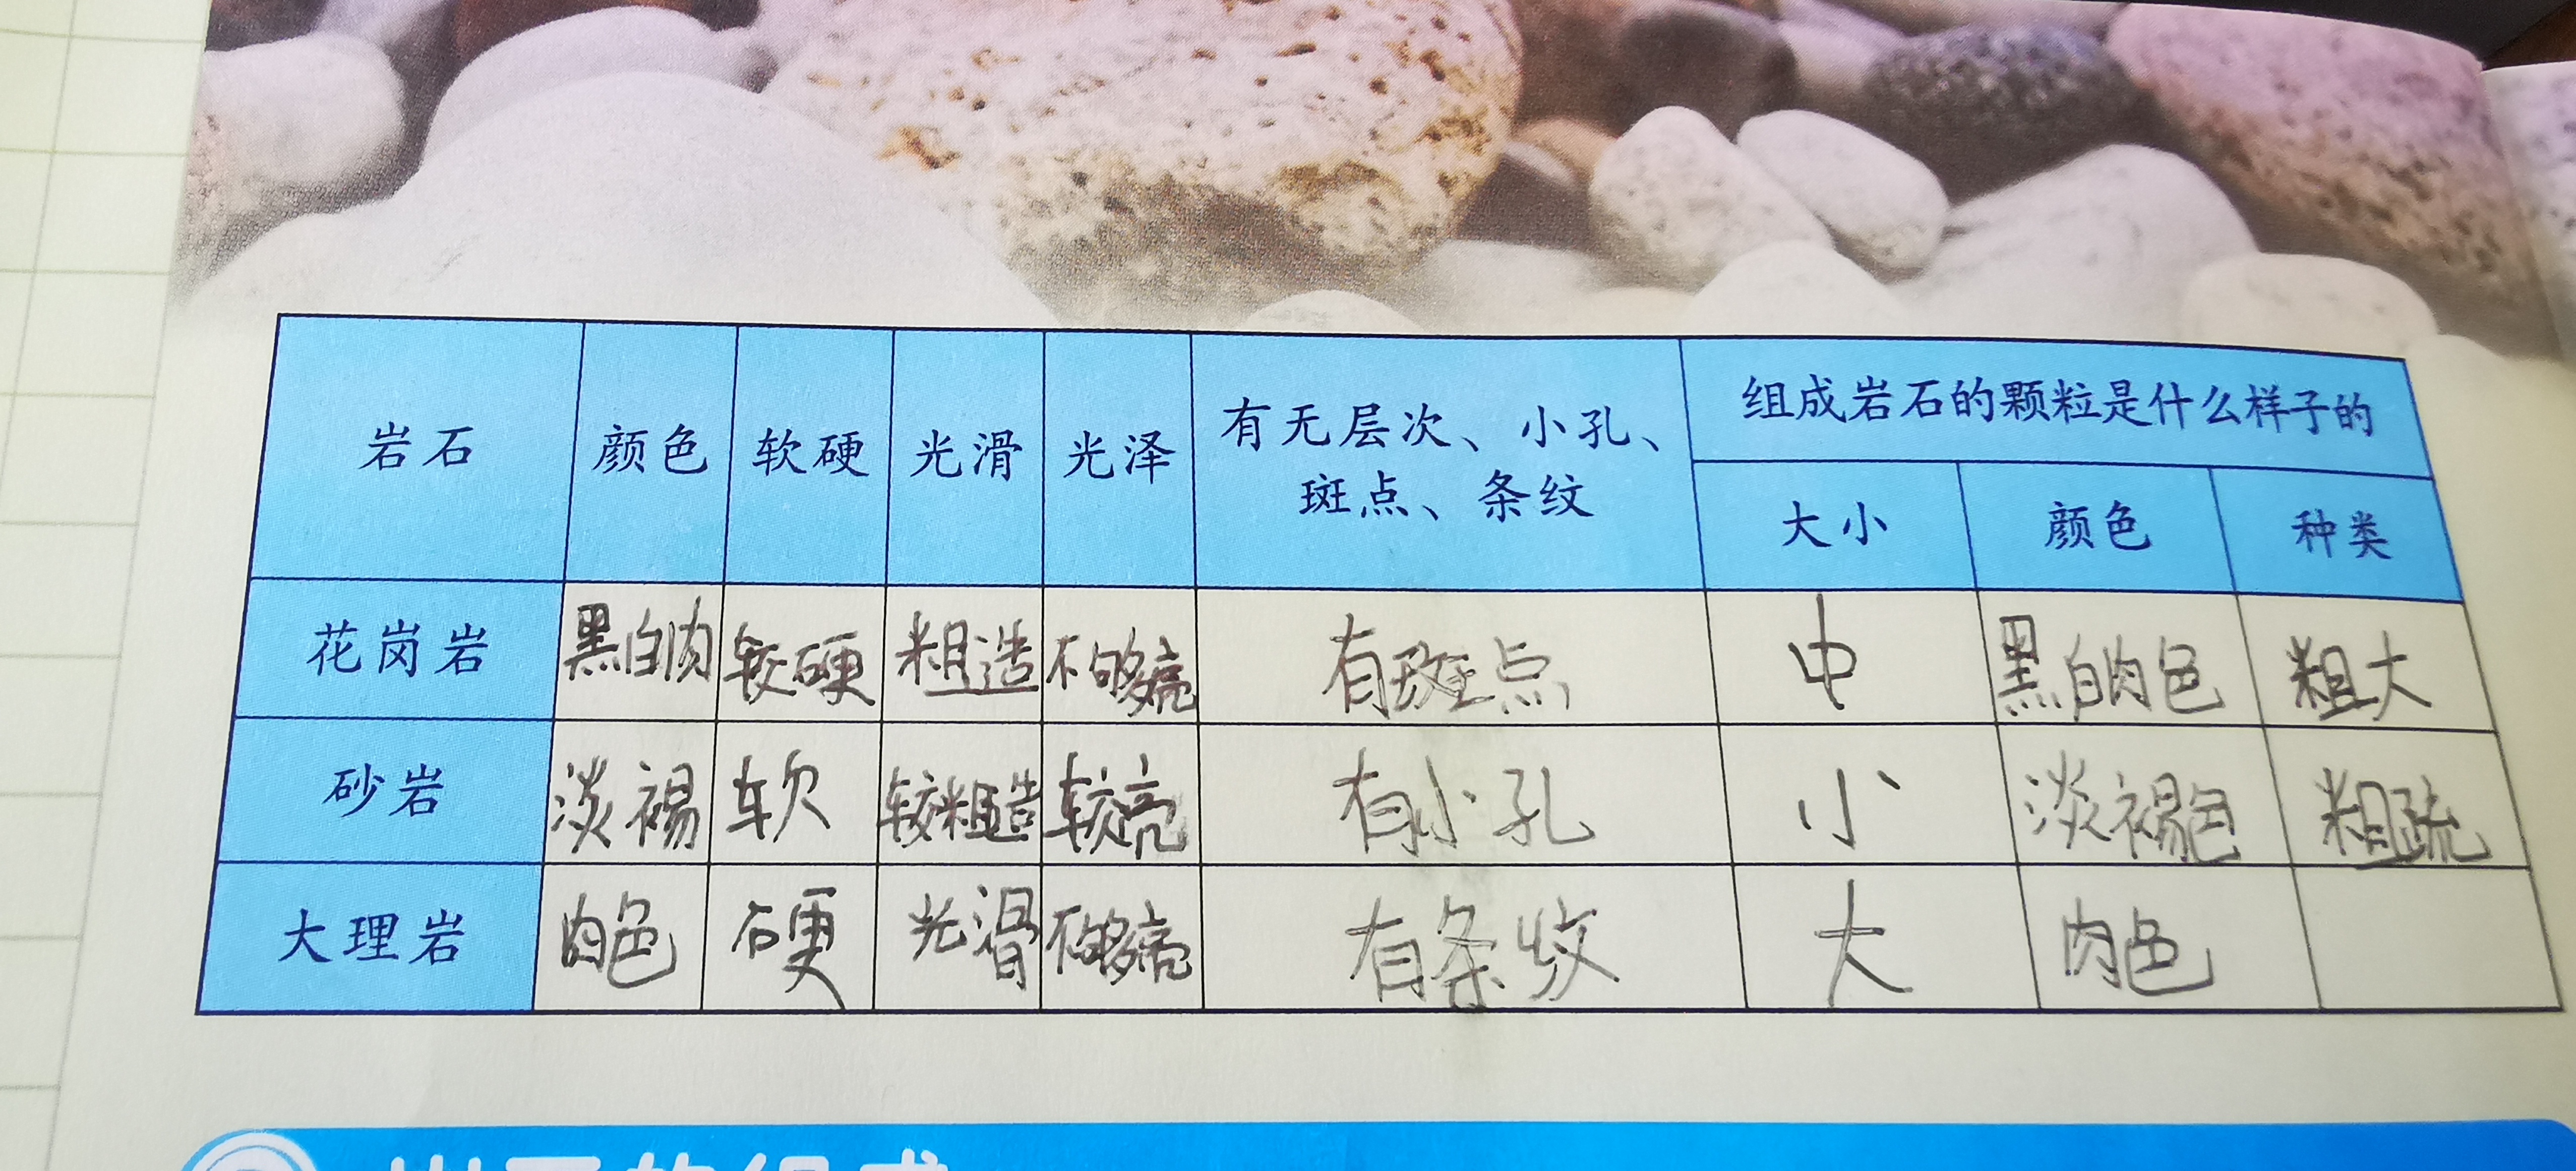 岩石 颜色 软硬 光滑 光泽 有无层次、小孔、斑点、条纹 组成岩石的颗粒是什么样子的
大小 颜色 种类
花岗岩 黑白肉 较硬 粗造 不够亮 有斑点 中 黑白肉色 粗大
砂岩 淡裼 软 较粗造 较亮 有小孔 小 淡裼色 粗疏
大理岩 肉色 硬 光滑 不够亮 有条纹 大 肉色